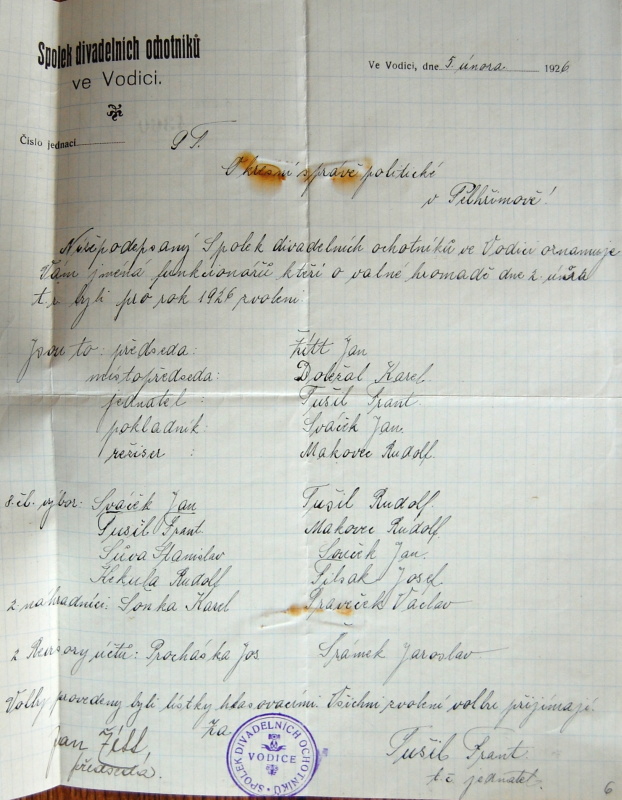 Spolek divadelních ochotníků
ve Vodici.
Ve Vodici, dne 5. února 1926
Číslo jednací
Okresní správě politické
v Pelhřimově!
Nížepodepsaný Spolek divadelních ochotníků ve Vodici oznamuje
Vám jména funkcionářů, kteří o valné hromadě dne 2. února
t.r. byli pro rok 1926 zvoleni.
Jsou to: předseda: Žítt Jan
místopředseda: Doležal Karel
jednatel: Tušil Frant.
pokladník: Sváček Jan
režiser: Makovec Rudolf.
8. čl. výbor: Sváček Jan Tušil Rudolf.
Tušil Frant Makovec Rudolf.
Sůva Stanislav Jan.
Kekula Rudolf Josef
2 náhradníci: Sonka Karel Václav
2 Revisory účtů: Procháska Jos Šrámek Jaroslav
Volby provedeny byli lístky hlasovacími. Všichni zvolení volbu přijímají.
Za
Jan Žítt, Tušil Frant
předseda. t.č. jednatel.
SPOLEK DIVADELNÍCH OCHOTNÍKŮ
VODICE
6